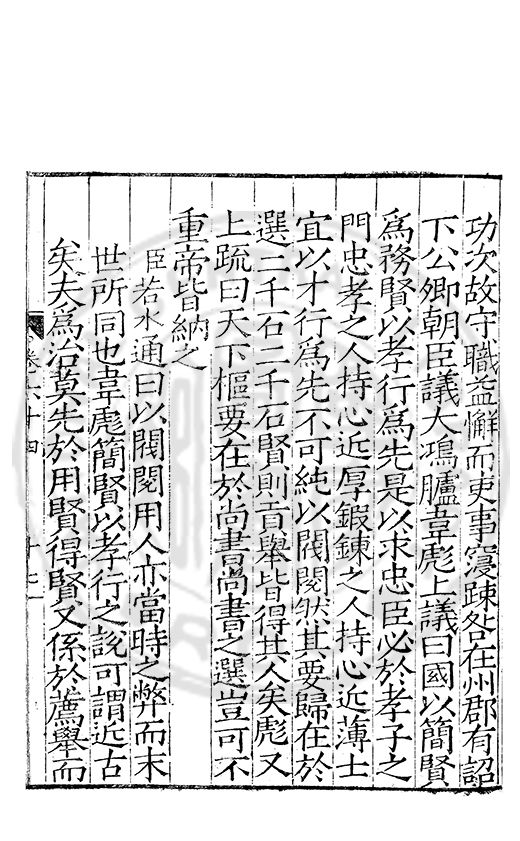 功次故守職益懈而吏事寖疎咎在州郡有詔
下公卿朝臣議大鴻臚韋彪上議曰國以簡賢
爲務賢以孝行爲先是以求忠臣必於孝子之
門忠孝之人持心近厚鍛鍊之人持心近薄士
宜以才行爲先不可純以閥閱然其要歸在於
選二千石二千石賢則貢舉皆得其人矣彪又
上疏曰天下樞要在於尚書尚書之選豈可不
重帝皆納之
臣若水通曰以閥閱用人亦當時之弊而末
世所同也韋彪簡賢以孝行之說可謂近古
矣夫爲治莫先於用賢得賢又係於薦舉而
卷六十四